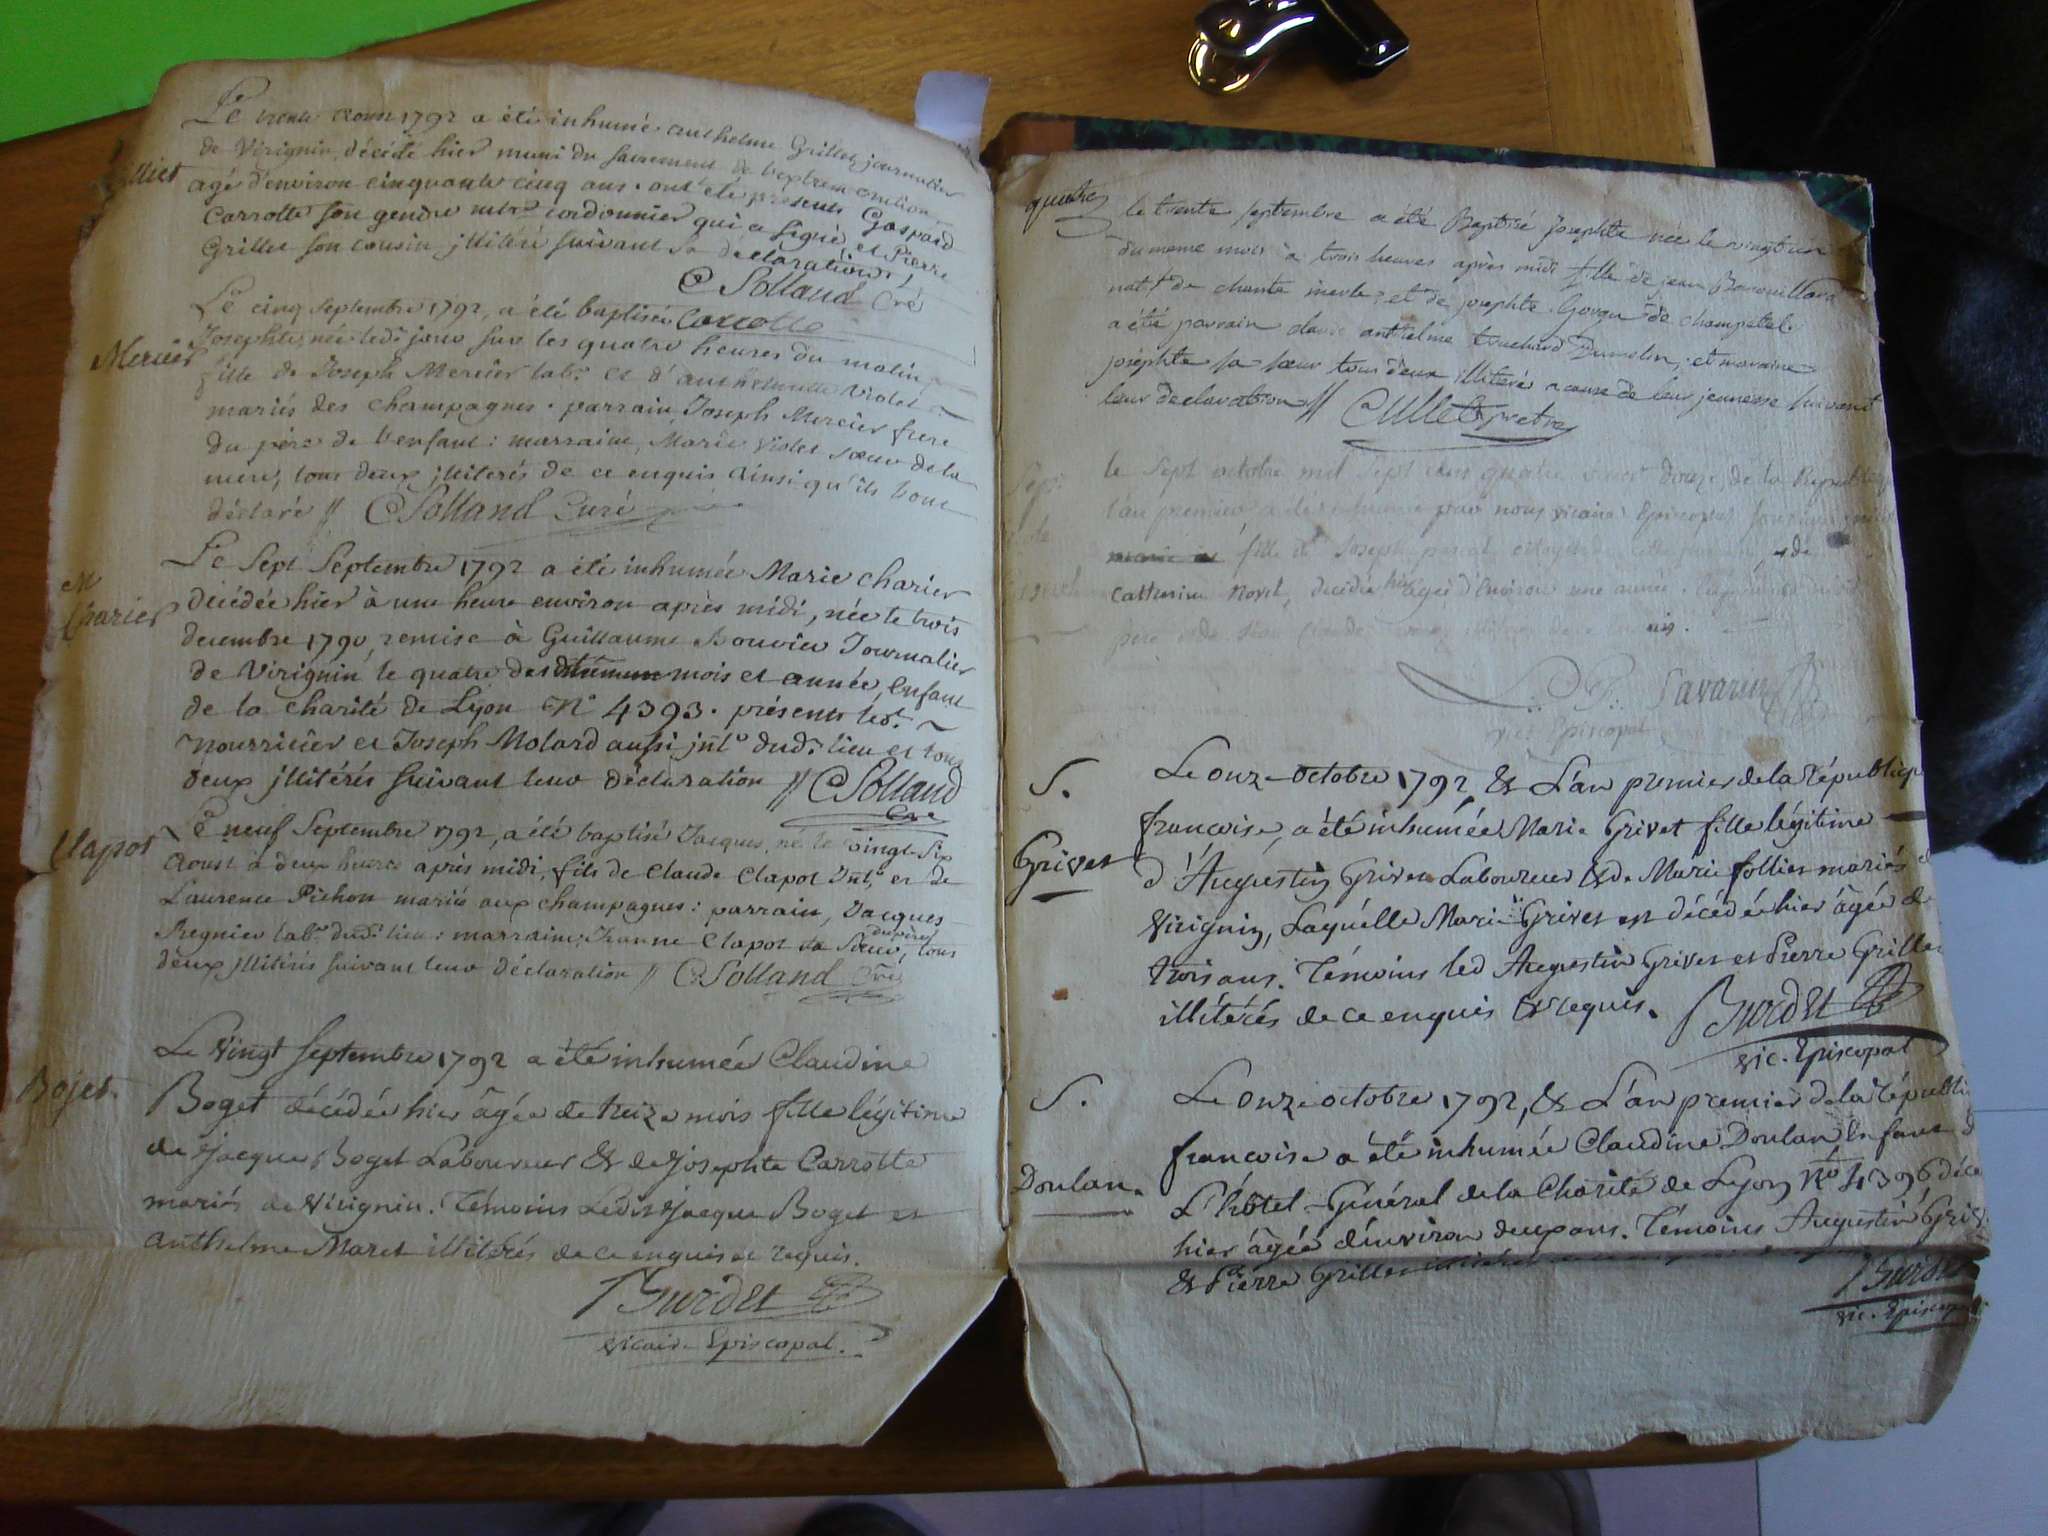 Le trente Aoust 1792 a été inhumé anthelme Grillet journalier
de Virignin, décédé hier muni du sacrement de l'extrem onction
agé d'environ cinquante cinq ans. ont été présents Gaspard
Carrotte son gendre cordonnier qui a signé, et Pierre
Grillet son cousin jllitéré suivant sa déclaration
CSolland Cré
Carrotte
Mercier
Le cinq Septembre 1792, a été baptisée
Josephte, née led. jour sur les quatre heures du matin
fille de Joseph Mercier lab. et d'anthelmette Violet
mariés des champagnes. parrain Joseph Mercier frere
du père de l'enfant: marraine, Marie Violet sœur de la
mere, tous deux jllitérés de ce enquis ainsi qu'ils l'ont
déclaré // CSolland Curé
M
Charier
Le Sept Septembre 1792 a été inhumée Marie charier
décédée hier à une heure environ après midi, née le trois
decembre 1790, remise à Guillaume Bouvier Journalier
de Virignin le quatre des mois et année, enfant
de la charité de Lyon N° 4393. présents led.
Nourricier et Joseph Molard aussi jnl. dud. lieu et tous
deux jllitérés suivant leur déclaration // CSolland
Cré
Clapot
Le neuf Septembre 1792, a été baptisé Jacques, né le vingt-six
Aoust à deux heures après midi, fils de Claude Clapot Jnl. et de
Laurence Pichon mariés aux champagnes: parrain, Jacques
Regnier lab. dud. lieu: marraine, Jeanne Clapot sa Sœur du père, tous
deux jllitérés suivant leur déclaration // CSolland Cré
Boget.
Le Vingt Septembre 1792 a été inhumée Claudine
Boget décédée hier âgée de treize mois fille légitime
de Jacque Boget Laboureur & de Josephte Carrotte
mariés de Virignin. Témoins Ledit Jacque Boget et
Anthelme Maret illitérés de ce enquis et requis.
Burdet
vicaire Episcopal.
le trente septembre a été Baptisé josephte née le vingt
du meme mois à trois heures après midi fille de jean
nat. de chante merle, et de josephte Goyan de champetel.
a été parrain claude anthelme truchard Dumolin, et maraine
josephte sa sœur tous deux illiteré a cause de leur jeunesse suivant
leur declaration // Cullet pretre
le Sept octobre mil sept cens quatre vingt douze, de la Republique
l'an premier a été inhumée par nous vicaire Episcopal soussigné
fille de Joseph citoyen de
Catherine Novel, décédée hier agée d'environ une année.
pere et de
Savarin
vic. Episcopal
S.
Grivet
Le onze octobre 1792 & L'an premier de la république
françoise, a été inhumée Marie Grivet fille légitime
d'Augustin Grivet Laboureur & de Marie follier mariés
Virignin, Laquelle Marie Grivet est décédée hier âgée de
trois ans. Témoins led Augustin Grivet et Pierre Grillet
illitérés de ce enquis & requis. Burdet
vic. Episcopal
S.
Doulan.
Le onze octobre 1792, & L'an premier de la républi
françoise a été inhumée Claudine Doulan Enfant d
L'hôtel-Général de la Charité de Lyon N° 4396 décé
hier âgée d'environ deux ans. Témoins Augustin Griv
& Pierre Grillet
Burdet
vic. Episcopal